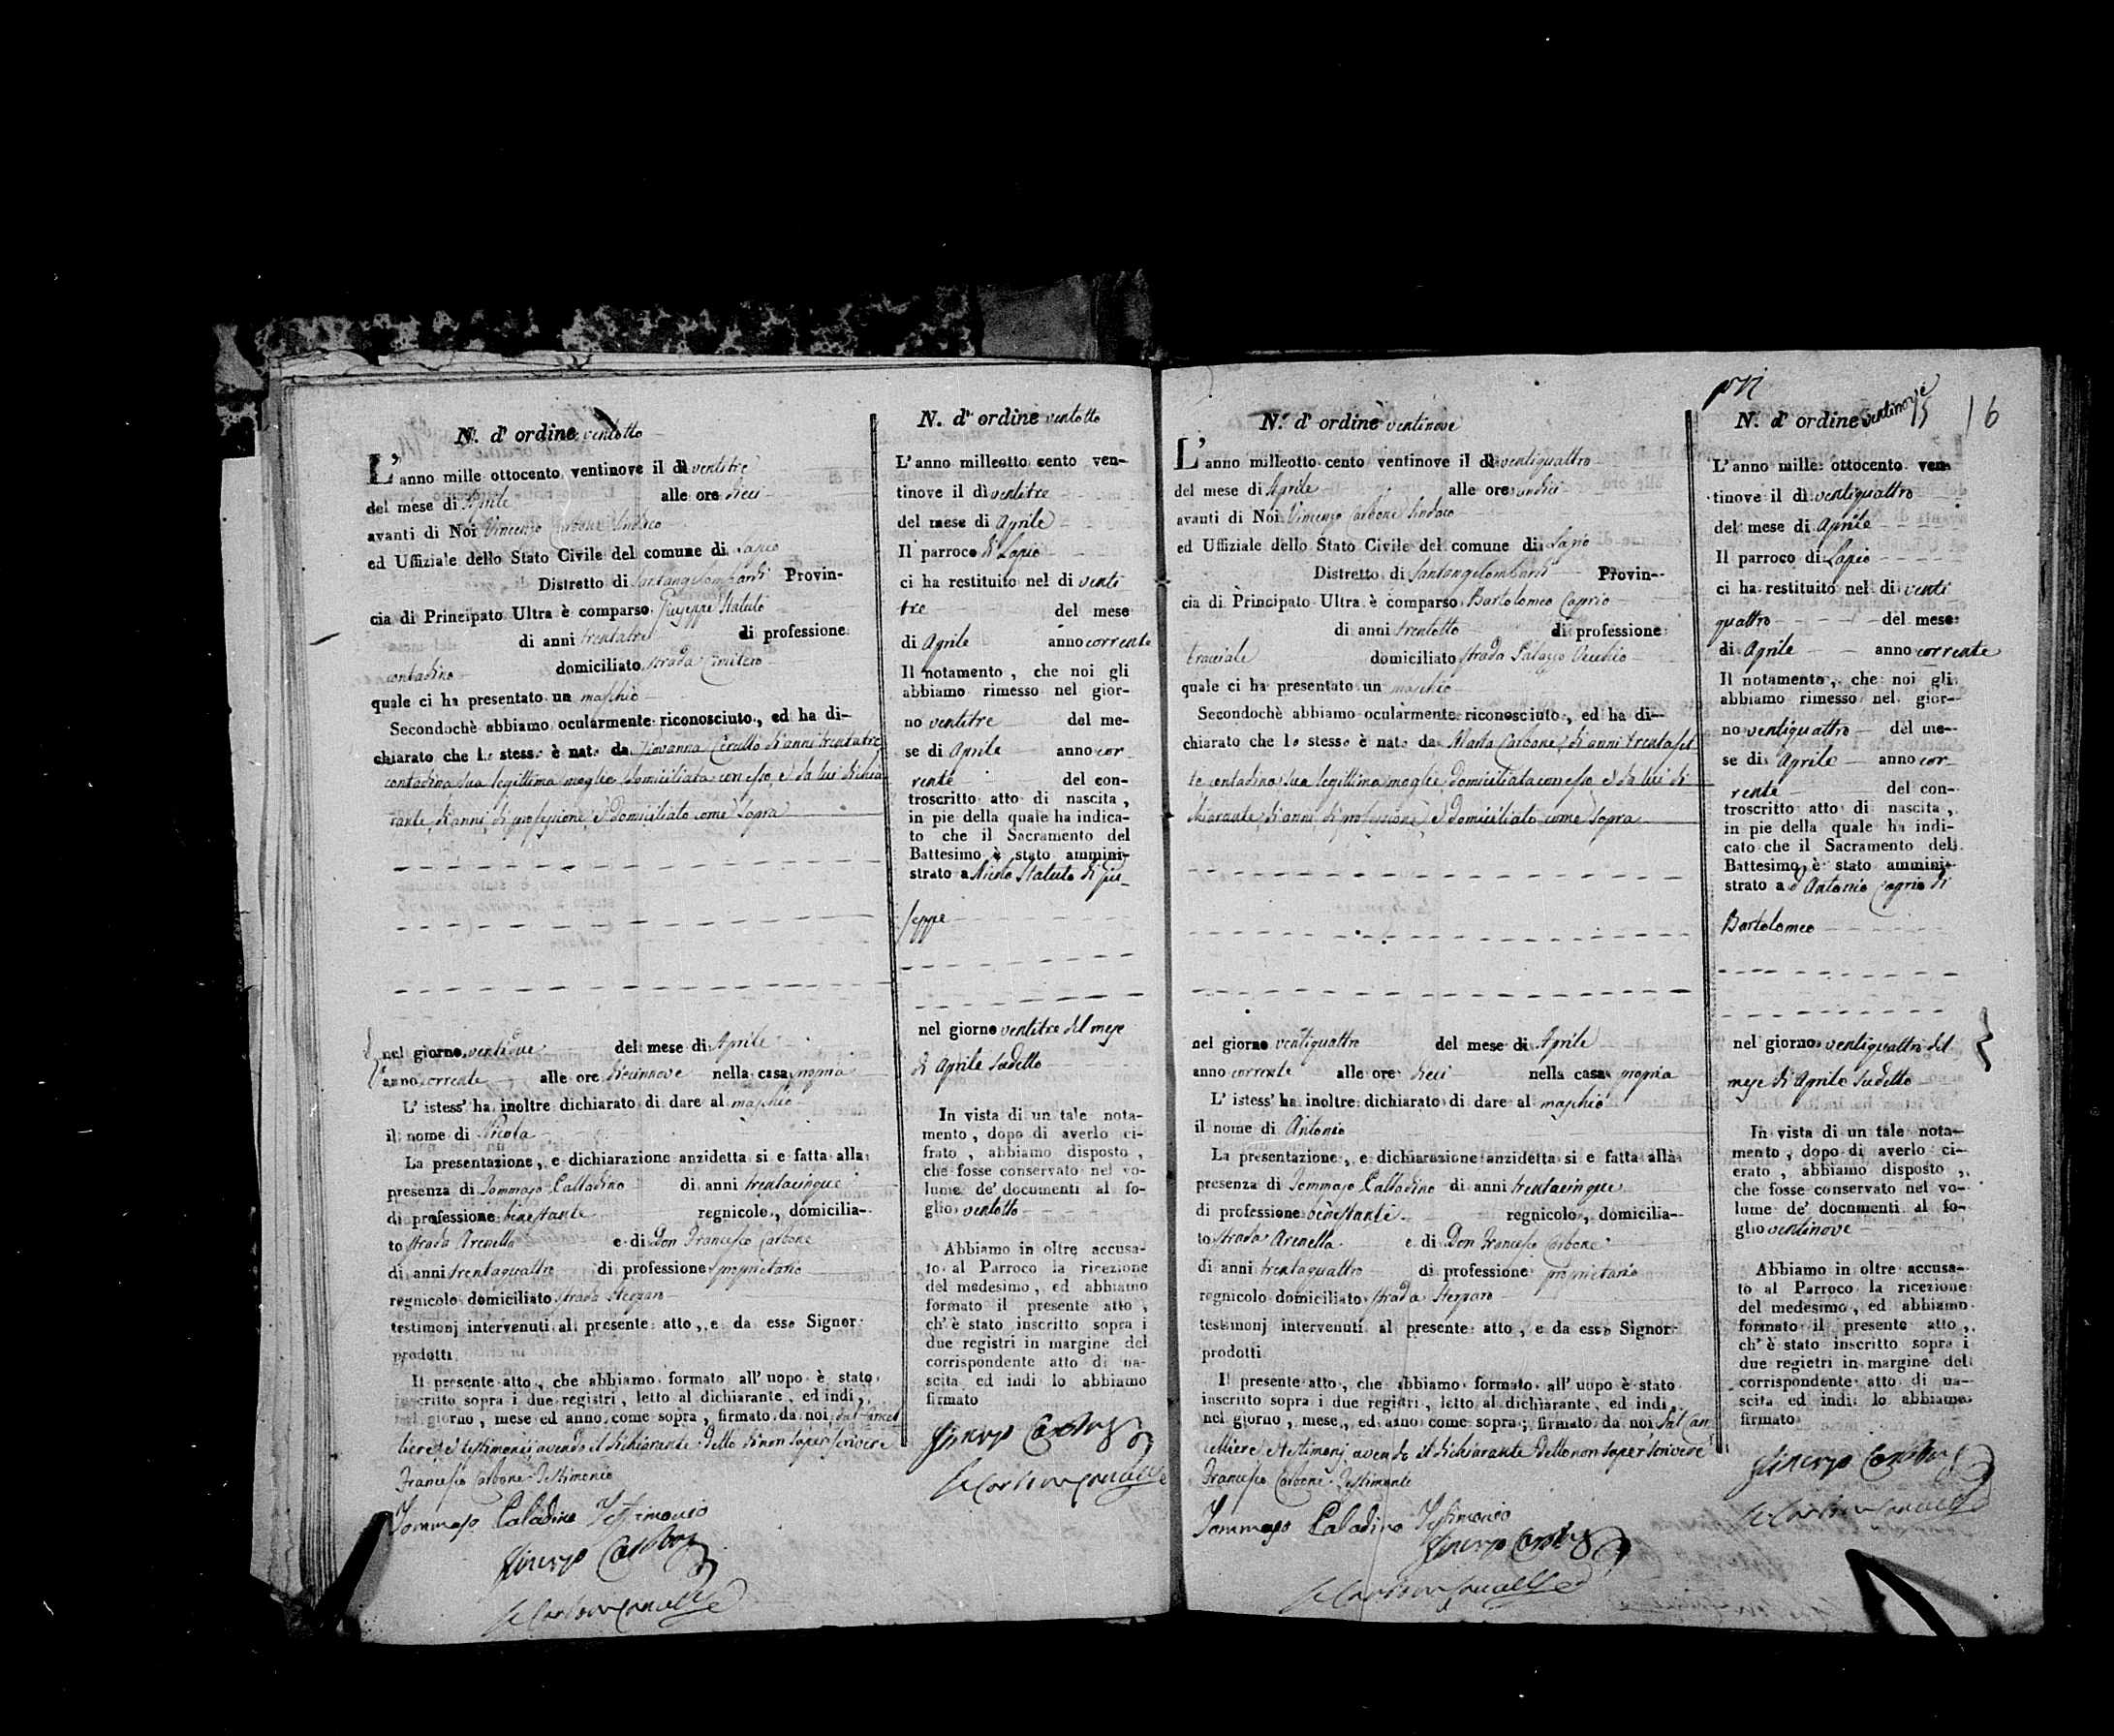 N. d' ordine ventotto
L' anno mille ottocento ventinove il dì ventitre
del mese di Aprile alle ore dieci
avanti di Noi Vincenzo Carbone Sindaco
ed Uffiziale dello Stato Civile del comune di Lapio
Distretto di Santangelombardi Provin-
cia di Principato Ultra è comparso Giuseppe Statuto
di anni trentatre di professione
contadino domiciliato strada Cimitero
quale ci ha presentato un maschio
Secondochè abbiamo ocularmente riconosciuto, ed ha di-
chiarato che lo stesso è nato da Giovanna Cerullo di anni trentatre
contadina sua legittima moglie domiciliata con esso, e da lui dichia
rante, di anni, di professione, e domiciliato come sopra
nel giorno ventidue del mese di Aprile
anno corrente alle ore diecinnove nella casa propria
L' istess' ha inoltre dichiarato di dare al maschio
il nome di Nicola
La presentazione, e dichiarazione anzidetta si e fatta alla
presenza di Tommaso Palladino di anni trentacinque
di professione benestante regnicolo, domicilia-
to strada Arenella e di Don Francesco Carbone
di anni trentaquattro di professione proprietario
regnicolo domiciliato strada Sterparo
testimonj intervenuti al presente atto, e da esso Signor
prodotti
Il presente atto, che abbiamo formato all' uopo è stato
inscritto sopra i due registri, letto al dichiarante, ed indi,
nel giorno, mese ed anno come sopra, firmato da noi, dal Cancel
liere, e testimonij avendo il dichiarante detto di non saper scrivere
Francesco Carbone Testimonio
Tommaso Paladino Testimonio
N. d' ordine ventotto
L' anno milleotto cento ven-
tinove il dì ventitre
del mese di Aprile
Il parroco di Lapio
ci ha restituito nel di venti
tre del mese
di Aprile anno corrente
Il notamento, che noi gli
abbiamo rimesso nel gior-
no ventitre del me-
se di Aprile anno cor
rente del con-
troscritto atto di nascita,
in pie della quale ha indica-
to che il Sacramento del
Battesimo è stato ammini-
strato a Nicola Statuto di Giu-
seppe
nel giorno ventitre del mese
di Aprile sudetto
In vista di un tale nota-
mento, dopo di averlo ci-
frato, abbiamo disposto,
che fosse conservato nel vo-
lume de' documenti al fo-
glio ventotto
Abbiamo in oltre accusa-
to al Parroco la ricezione
del medesimo, ed abbiamo
formato il presente atto,
ch' è stato inscritto sopra i
due registri in margine del
corrispondente atto di na-
scita ed indi lo abbiamo
firmato
N. d' ordine ventinove
L' anno milleotto cento ventinove il dì ventiquattro
del mese di Aprile alle ore undici
avanti di Noi Vincenzo Carbone Sindaco
ed Uffiziale dello Stato Civile del comune di Lapio
Distretto di Santangelombardi Provin-
cia di Principato Ultra è comparso Bartolomeo Caprio
di anni trentotto di professione
bracciale domiciliato strada Palazzo Vecchio
quale ci ha presentato un maschio
Secondochè abbiamo ocularmente riconosciuto, ed ha di-
chiarato che lo stesso è nato da Marta Carbone, di anni trentaset
te contadina sua legittima moglie domiciliata con esso, e da lui di
chiarante, di anni di professione, e domiciliato come sopra
nel giorno ventiquattro del mese di Aprile
anno corrente alle ore dieci nella casa propria
L' istess' ha inoltre dichiarato di dare al maschio
il nome di Antonio
La presentazione, e dichiarazione anzidetta si e fatta alla
presenza di Tommaso Palladino di anni trentacinque
di professione benestante regnicolo, domicilia-
to strada Arenella e di Don Francesco Carbone
di anni trentaquattro di professione proprietario
regnicolo domiciliato strada Sterparo
testimonj intervenuti al presente atto, e da esso Signor
prodotti
Il presente atto, che abbiamo formato all' uopo è stato
inscritto sopra i due registri, letto al dichiarante, ed indi
nel giorno, mese, ed anno come sopra; firmato da noi, dal Can
celliere e testimonj, avendo il dichiarante detto non saper scrivere
Francesco Carbone Testimonio
Tommaso Paladino Testimonio
16
N. d' ordine ventinove
15
L' anno mille ottocento ven-
tinove il dì ventiquattro
del mese di Aprile
Il parroco di Lapio
ci ha restituito nel di venti
quattro del mese
di Aprile anno corrente
Il notamento, che noi gli
abbiamo rimesso nel gior-
no ventiquattro del me-
se di Aprile anno cor-
rente del con-
troscritto atto di nascita,
in pie della quale ha indi-
cato che il Sacramento del
Battesimo è stato ammini-
strato ad Antonio Caprio di
Bartolomeo
nel giorno ventiquattro del
mese di Aprile sudetto
In vista di un tale nota-
mento, dopo di averlo ci-
erato, abbiamo disposto,
che fosse conservato nel vo-
lume de' documenti al fo-
glio ventinove
Abbiamo in oltre accusa-
to al Parroco la ricezione
del medesimo, ed abbiamo
formato il presente atto,
ch' è stato inscritto sopra i
due registri in margine del
corrispondente atto di na-
scita ed indi lo abbiamo
firmato